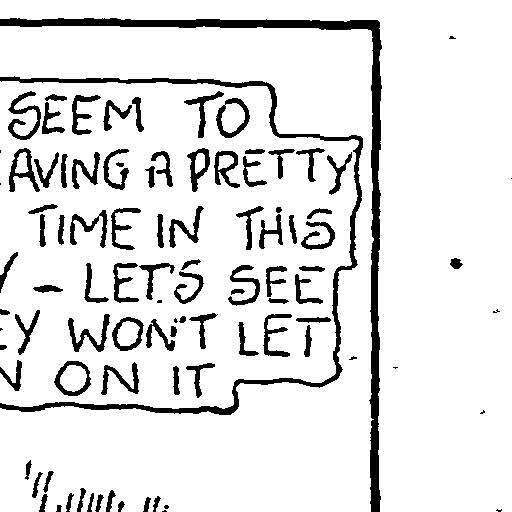 SEEM TO
EAVING A PRETTY
TIME IN THIS
Y - LET'S SEE
EY WON'T LET
N ON IT